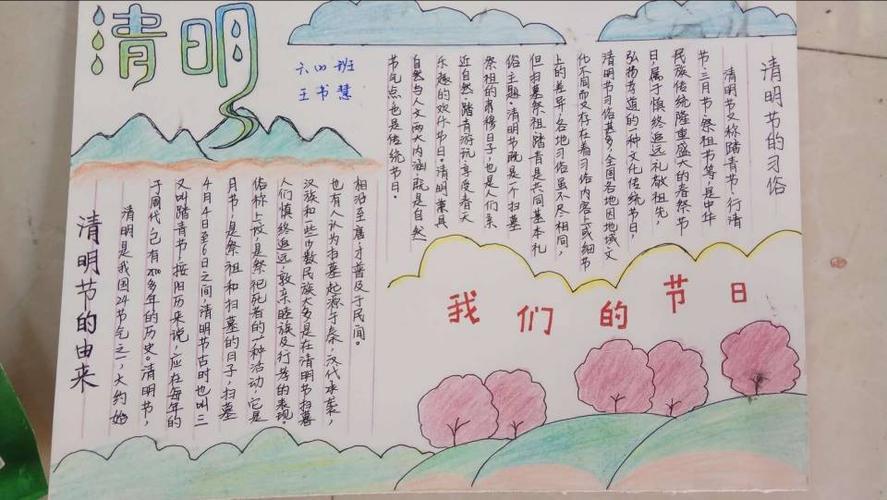 清明
六四班
王书慧
清明节的习俗
清明节又称踏青节、行清
节、三月节、祭祖节等,是中华
民族传统隆重盛大的春祭节
日,属于慎终追远礼敬祖先,
弘扬孝道的一种文化传统节日,
清明节习俗甚多,全国各地因地域文
化不同而又存在着习俗内容上或细节
上的差异,各地习俗虽不尽相同,
但扫墓祭祖踏青是共同基本礼
俗主题。清明节既是一个扫墓
祭祖的肃穆日子,也是人们亲
近自然、踏青游玩、享受春天
乐趣的欢乐节日。清明兼具
自然与人文两大内涵,既是自然
节气点,也是传统节日。
清明节的由来
清明是我国24节气之一,大约始
于周代,已有2500多年的历史。清明节,
又叫踏青节,按阳历来说,应在每年的
4月4日至6日之间,清明节古时也叫三
月节,是祭祖和扫墓的日子,扫墓
俗称上坟,是祭祀死者的一种活动,它是
人们慎终追远,敦亲睦族及行孝的表现。
汉族和一些少数民族大多是在清明节扫墓
也有人认为扫墓起源于秦,汉代承袭,
相沿至唐,才普及于民间。
我们的节日